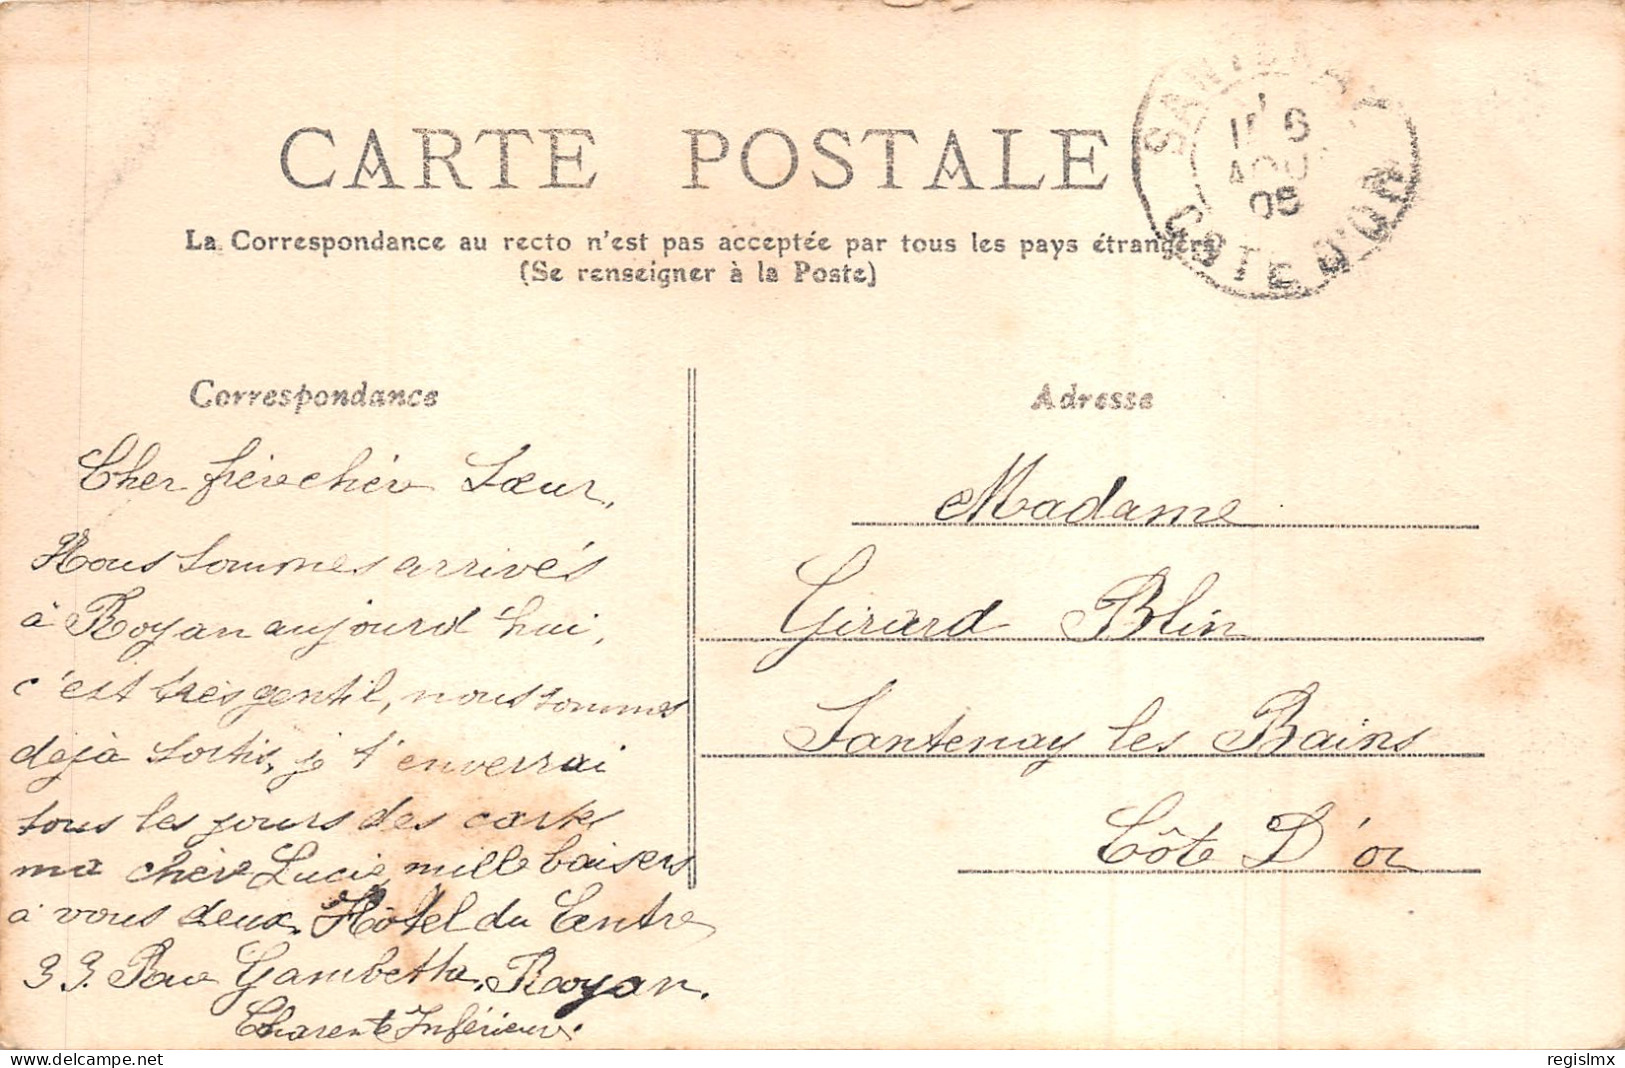 CARTE POSTALE
La Correspondance au recto n'est pas acceptée par tous les pays étrangers
(Se renseigner à la Poste)
SANTENAY
6
AOU
08
COTE D'OR
Correspondance
Cher frère chère Soeur,
Nous sommes arrivés
à Royan aujourd'hui,
c'est très gentil, nous sommes
dejà sortis, je t'enverrai
tous les jours des cartes
ma chère Lucie, mille baisers
à vous deux. Hôtel du Centre
33. Rue Gambetta. Royan.
Charente Inférieure.
Adresse
Madame
Girard Blin
Santenay les Bains
Côte D'or
regislmx
www.delcampe.net